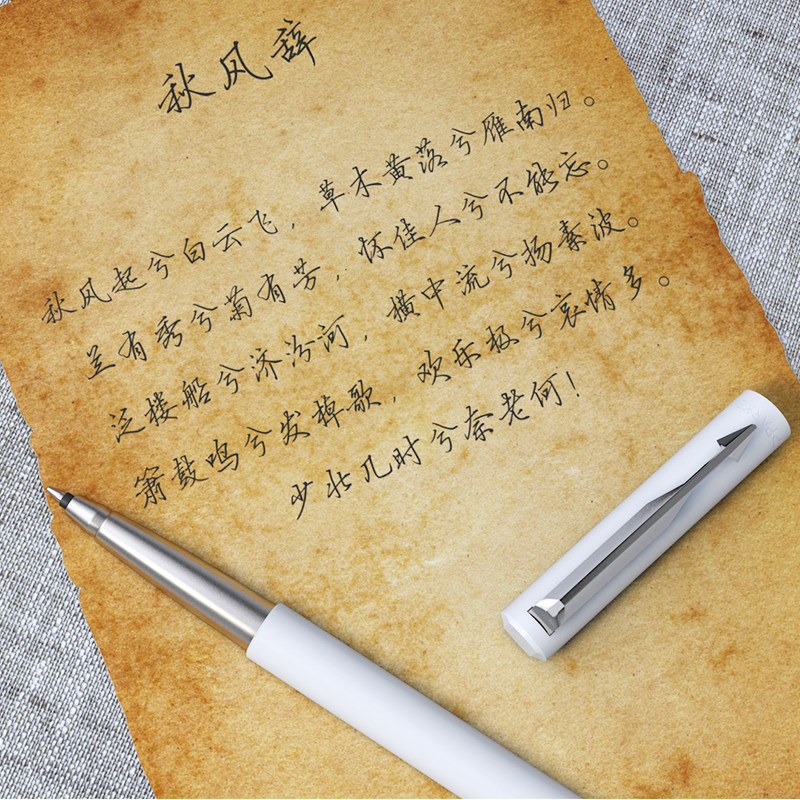 秋风辞
秋风起兮白云飞，草木黄落兮雁南归。
兰有秀兮菊有芳，怀佳人兮不能忘。
泛楼船兮济汾河，横中流兮扬素波。
箫鼓鸣兮发棹歌，欢乐极兮哀情多。
少壮几时兮奈老何！